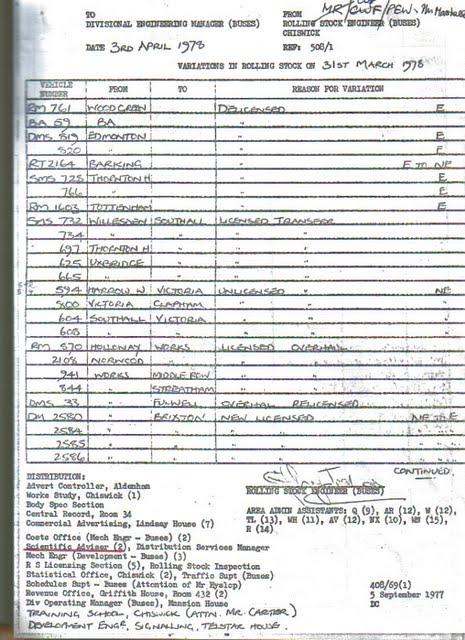 MR GWF/PEW.
TO FROM
DIVISIONAL ENGINEERING MANAGER (BUSES) ROLLING STOCK ENGINEER (BUSES)
CHISWICK
DATE 3RD APRIL 1978 REF: 508/1
VARIATIONS IN ROLLING STOCK ON 31ST MARCH 1978
VEHICLE NUMBER FROM TO REASON FOR VARIATION
RM 761 WOODGREEN DELICENSED E
BA 59 BA "
DMS 819 EDMONTON " E
820 " E
RT2164 BARKING " E TO NE
SMS 728 THORNTON H " E
766 " " E
RM 1603 TOTTENHAM " E
SMS 732 WILLESDEN SOUTHALL LICENSED TRANSFER
734 " " " "
697 THORNTON H " " "
625 UXBRIDGE " " "
665 " " " "
594 HARROW W. VICTORIA UNLICENSED " NE
800 VICTORIA CLAPHAM " " "
604 SOUTHALL VICTORIA " " "
608 " " " " "
RM 870 HOLLOWAY WORKS LICENSED OVERHAUL
2108 NORWOOD " " "
941 WORKS MIDDLE ROW " "
844 " STREATHAM " "
DMS 33 " FULWELL OVERHAUL RELICENSED
DM 2580 BRIXTON NEW LICENSED
2584 " " "
2585 " " "
2586 " " "
CONTINUED.
DISTRIBUTION:
Advert Controller, Aldenham ROLLING STOCK ENGINEER (BUSES)
Works Study, Chiswick (1)
Body Spec Section AREA ADMIN ASSISTANTS: Q (9), AR (12), W (12),
Central Record, Room 34 TL (13), WH (11), AV (12), NX (10), WN (15),
Commercial Advertising, Lindsay House (7) R (14)
Costs Office (Mech Engr - Buses) (2)
Scientific Adviser (2), Distribution Services Manager
Mech Engr (Development - Buses) (3)
R S Licensing Section (5), Rolling Stock Inspection
Statistical Office, Chiswick (2), Traffic Supt (Buses)
Schedules Supt - Buses (Attention of Mr Hyslop) 408/69(1)
Revenue Office, Griffith House, Room 432 (2) 5 September 1977
Div Operating Manager (Buses), Mansion House DC
TRAINING SCHOOL, CHISWICK (ATTN. MR. CARTER)
DEVELOPMENT ENGR, SIGNALLING, TELSTAR HOUSE.